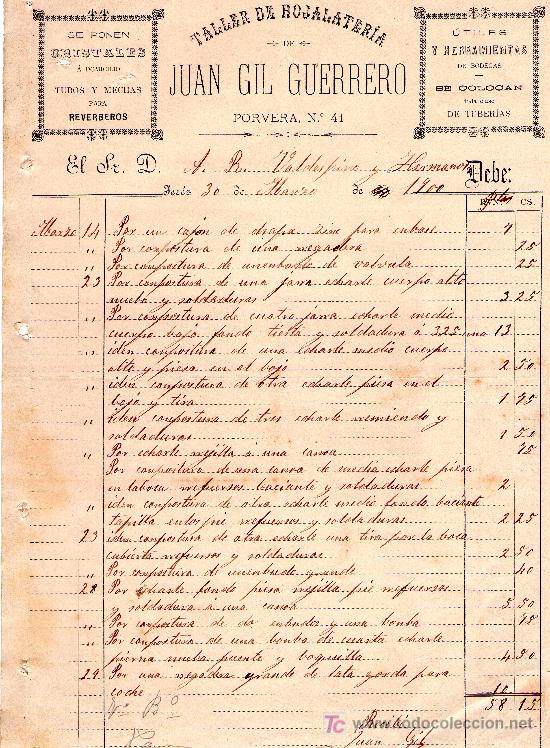 SE PONEN
CRISTALES
Á DOMICILIO
TUBOS Y MECHAS
PARA
REVERBEROS
TALLER DE HOJALATERÍA
DE
JUAN GIL GUERRERO
PORVERA, N.º 41
ÚTILES
Y HERRAMIENTOS
DE BODEGAS
SE COLOCAN
TODA CLASE
DE TUBERÍAS
El Sr. D. A. R. Valdespino y Hermanos Debe:
Jeréz 30 de Marzo de 1900
Ptas CS.
Marzo 14 Por un cajon de chapa zinc para embase 7
" Por conpostura de una regadera 25
" Por conpostura de un de valvula 25
23 Por conpostura de una jarra echarle cuerpo alto
nuebo y soldaduras 3 25
" Por conpostura de cuatro jarra echarle medio
cuerpo bajo fondo tiesta y soldadura á 3.25 una 13
" iden conpostura de una echarle medio cuerpo
alto y piesa en el bajo 2 50
" iden conpostura de otra echarle piesa en el
bajo y tira 1 75
" iden conpostura de tres echarle remiendo y
soldaduras 1 50
" Por echarle rejilla á una canoa 75
Por conpostura de una canoa de media echarle piesa
en la boca refuersos baciante y soldaduras 2
" iden conpostura de otra echarle medio fondo baciante
tapilla en los pie refuersos y soldaduras 2 25
23 iden conpostura de otra echarle una tira por la boca
cubierta refuersos y soldaduras 2 50
" Por conpostura de un enbudo grande 40
28 Por echarle fondo piesa rejilla pié refuersos
y soldadura á una canoa 5 50
" Por conpostura de do enbudos y una bonba 75
" Por conpostura de una bonba de cuarta echarle
pierna nueba puente y boquilla 4 50
29 Por una regadera grande de lata gorda para
coche 10
58 15
Vº Bº
Recibí
Juan Gil
TC www.todocoleccion.net